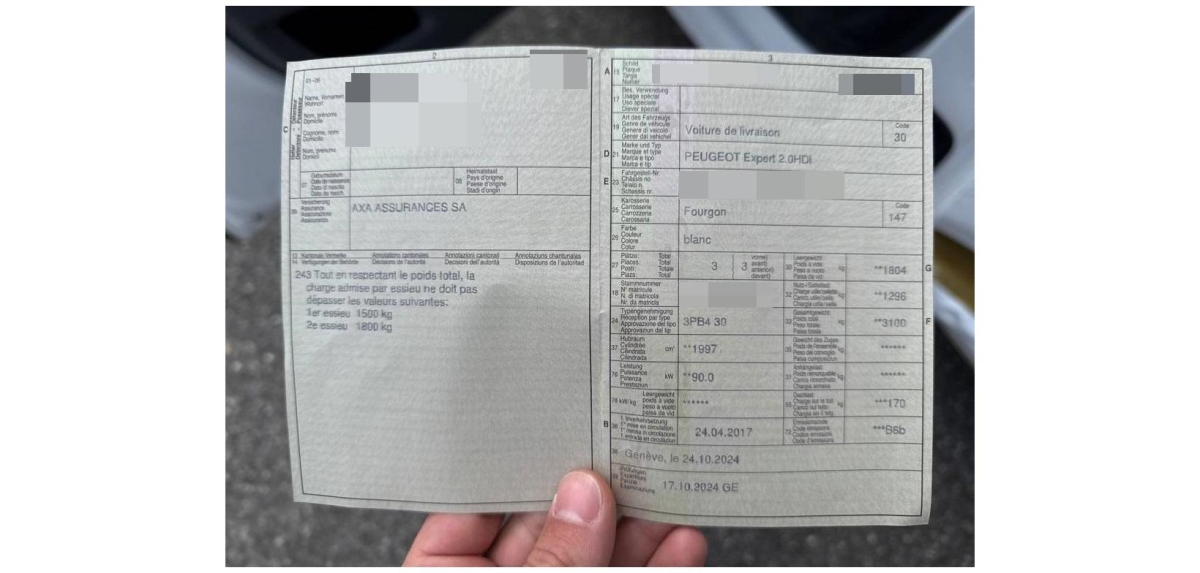 2
01-06
Name, Vornamen
Wohnort
Nom, prénoms
Domicile
Cognome, nomi
Domicilio
Num, prenums
Domicil
C
07
Geburtsdatum
Date de naissance
Data di nascita
Data da nasch.
08
Heimatstaat
Pays d'origine
Paese d'origine
Stadi d'origin
09
Versicherung
Assurance
Assicurazione
Assicuranza
AXA ASSURANCES SA
13 Kantonale Vermerke Annotations cantonales Annotazioni cantonali Annotaziuns chantunalas
14 Verfügungen der Behörde Décisions de l'autorité Decisioni dell'autorità Disposiziuns da l'autoritad
243 Tout en respectant le poids total, la
charge admise par essieu ne doit pas
dépasser les valeurs suivantes:
1er essieu 1500 kg
2e essieu 1800 kg
3
A 15
Schild
Plaque
Targa
Numer
17
Bes. Verwendung
Usage spécial
Uso speciale
Diever spezial
19
Art des Fahrzeugs
Genre de véhicule
Genere di veicolo
Gener dal vehichel
Voiture de livraison
Code
30
D 21
Marke und Typ
Marque et type
Marca e tipo
Marca e tip
PEUGEOT Expert 2.0HDI
E 23
Fahrgestell-Nr.
Châssis no
Telaio n.
Schassis nr.
25
Karosserie
Carrosserie
Carrozzeria
Carossaria
Fourgon
Code
147
26
Farbe
Couleur
Colore
Colur
blanc
27
Plätze: Total
Places: Total
Posti: Totale
Plazs: Total
3
vorne)
avant)
anteriori)
davant)
3
30
Leergewicht
Poids à vide
Peso a vuoto
Paisa da vid
kg
**1804
G
18
Stammnummer
N° matricule
N. di matricola
Nr. da matricla
32
kg
**1296
24
Typengenehmigung
Réception par type
Approvazione del tipo
Approvaziun dal tip
3PB4 30
33
Gesamtgewicht
Poids total
Peso totale
Paisa totala
kg
**3100
F
37
Hubraum
Cylindrée
Cilindrata
Cilindrada
cm³
**1997
35
Gewicht des Zuges
Poids de l'ensemble
kg
******
76
Leistung
Puissance
Potenza
Prestaziun
kW
**90.0
31
Anhängelast
kg
******
78 kW/kg
Leergewicht
poids à vide
peso a vuoto
paisa da vid
******
55
Dachlast
Charge sur le toit
kg
***170
B 36
1. Inverkehrsetzung
1re mise en circulation
1a messa in circolazione
1. entrada en circulaziun
24.04.2017
72
Emissionscode
Code émissions
***B6b
38
Genève, le 24.10.2024
39
Prüfungen
Expertises
Perizie
Examinaziuns
17.10.2024 GE